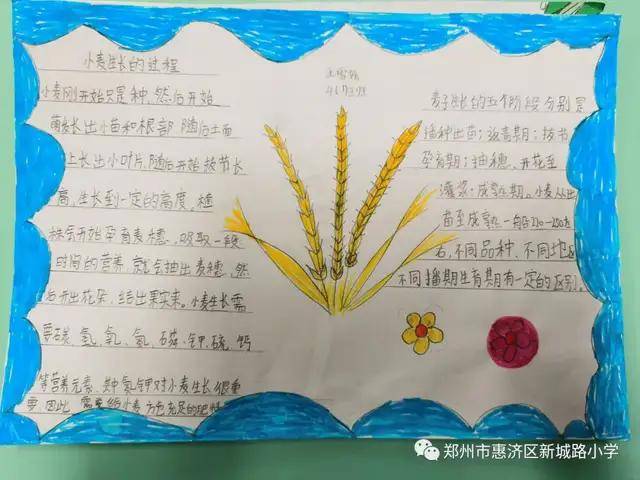 小麦生长的过程
小麦刚开始只是种,然后开始
萌长出小苗和根部 随后土面
上长出小叶片,随后开始拔节长
高,生长到一定的高度,穗
株会开始孕育麦穗,吸取一段
时间的营养,就会抽出麦穗,然
后开出花朵,结出果实来。小麦生长需
要石炭、氢、氧、氮、石磷、钾、硫、钙
等营养元素,其中氮、钾对小麦生长很重
要,因此,需要给小麦
充足的肥料
麦子生长的五个阶段分别是
播种出苗;返青期;拔节
孕育期;抽穗、开花至
灌浆、成熟期。小麦从出
苗至成熟一般
右,不同品种、不同地区
不同播期生育期有一定的区别。
郑州市惠济区新城路小学